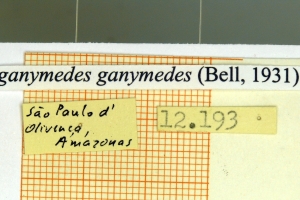 ganymedes ganymedes (Bell, 1931)
São Paulo d'
Olivença,
Amazonas
12.193